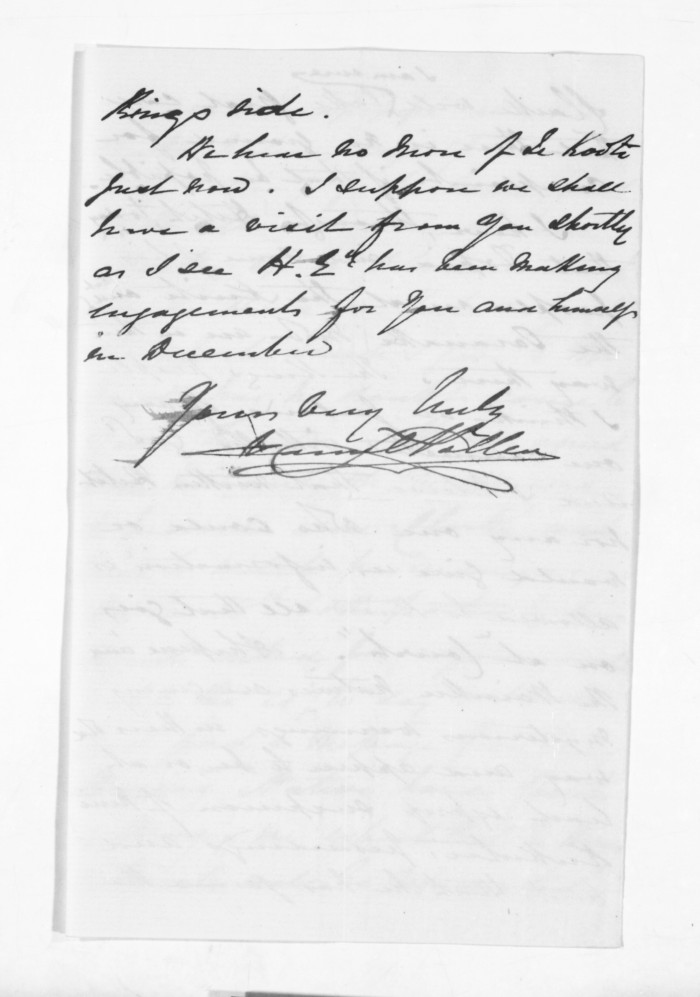 Kings side.
We hear no more of Te Kooti
just now. I suppose we shall
have a visit from you shortly
as I see H. Ey. has been making
engagements for you and himself
in December
Yours very truly